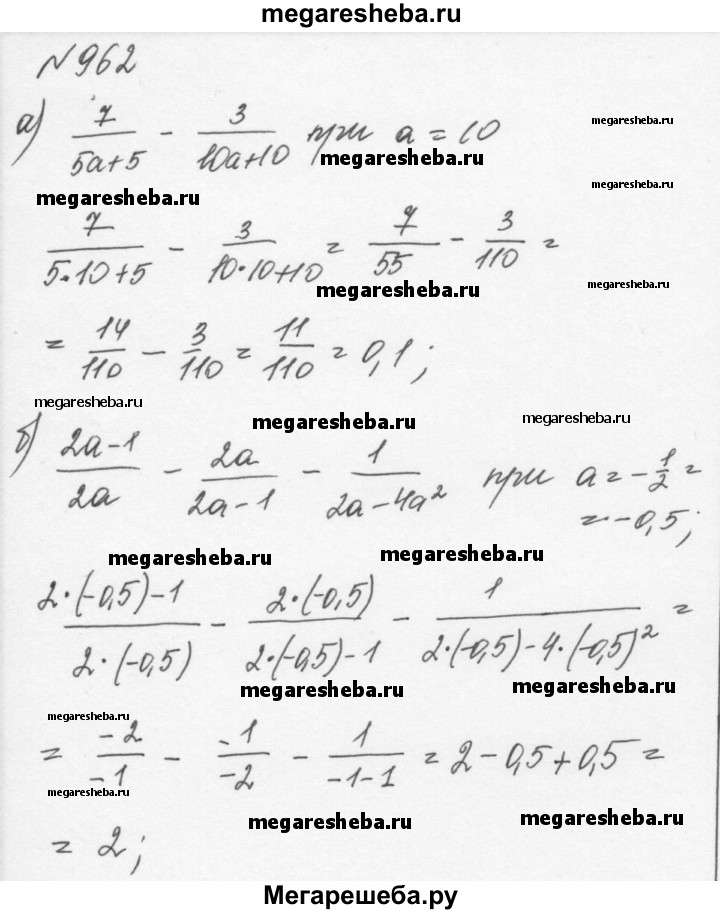 megaresheba.ru
№962
а) 7/(5a+5) - 3/(10a+10) при a = 10
megaresheba.ru
megaresheba.ru
megaresheba.ru
megaresheba.ru
7/(5·10+5) - 3/(10·10+10) = 7/55 - 3/110 =
megaresheba.ru
megaresheba.ru
= 14/110 - 3/110 = 11/110 = 0,1;
megaresheba.ru
megaresheba.ru
megaresheba.ru
б) (2a-1)/2a - 2a/(2a-1) - 1/(2a-4a²) при a = -1/2 =
= -0,5;
megaresheba.ru
megaresheba.ru
(2·(-0,5)-1)/(2·(-0,5)) - (2·(-0,5))/(2·(-0,5)-1) - 1/(2·(-0,5)-4·(-0,5)²) =
megaresheba.ru
megaresheba.ru
megaresheba.ru
= -2/-1 - -1/-2 - 1/(-1-1) = 2-0,5+0,5 =
megaresheba.ru
megaresheba.ru
megaresheba.ru
= 2;
megaresheba.ru
Мегарешеба.ру